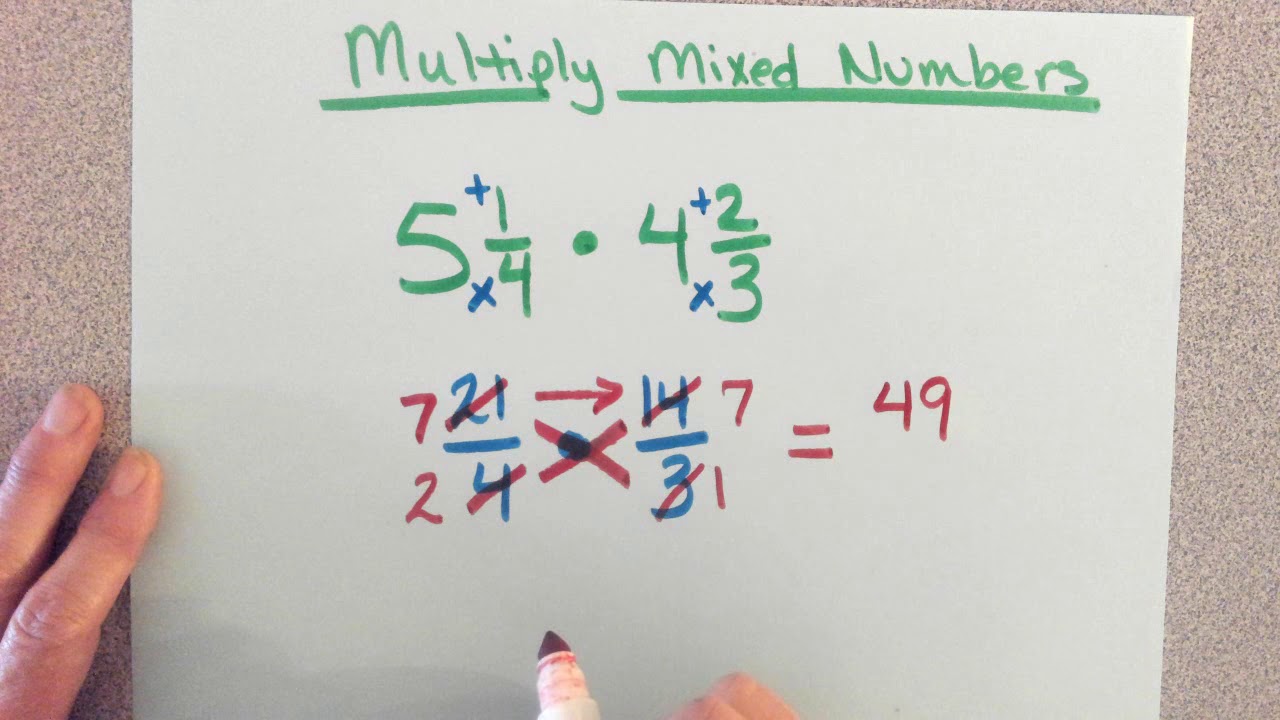 Multiply Mixed Numbers
5 + 1/4 x • 4 + 2/3 x
7 21/4 2 → • 14/3 7 1 = 49